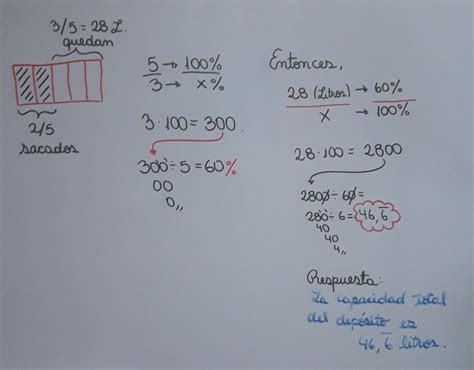 3/5 = 28 L.
quedan
2/5
sacados
5 → 100%
3 → x%
3 · 100 = 300.
300 ÷ 5 = 60%
00
0,,
Entonces,
28 (Litros) → 60%
x → 100%
28 · 100 = 2800
2800 ÷ 60 =
280 ÷ 6 = 46,6̅
40
40
4,,
Respuesta:
La capacidad total
del depósito es
46,6̅ litros.